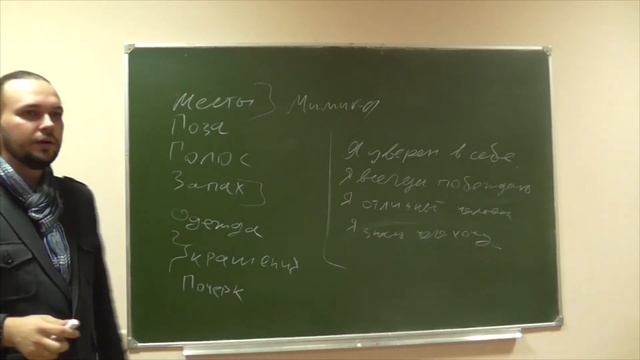 Жесты } Мимика
Поза
Голос
Запах
Одежда
Украшения
Почерк
Я уверен в себе.
Я всегда побеждаю
Я отличный человек
Я знаю чего хочу